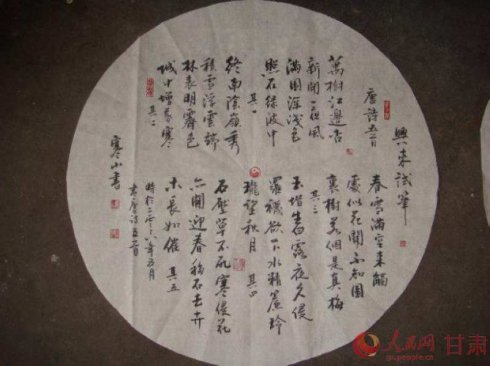 興來試筆
唐詩五首
萬樹江邊杏
新開一夜風
滿園深淺色
照在綠波中
其一
終南陰嶺秀
積雪浮雲端
林表明霽色
城中增暮寒
其二
春雪滿空來觸
處似花開不知園
裏樹若個是真梅
其三
玉階生白露夜久侵
羅襪卻下水精簾玲
瓏望秋月 其四
石壓草不死寒侵花
亦開迎春移石去卉
木長如催 其五
書唐詩五首
寒山書
人民网 甘肃
gs.people.com.cn